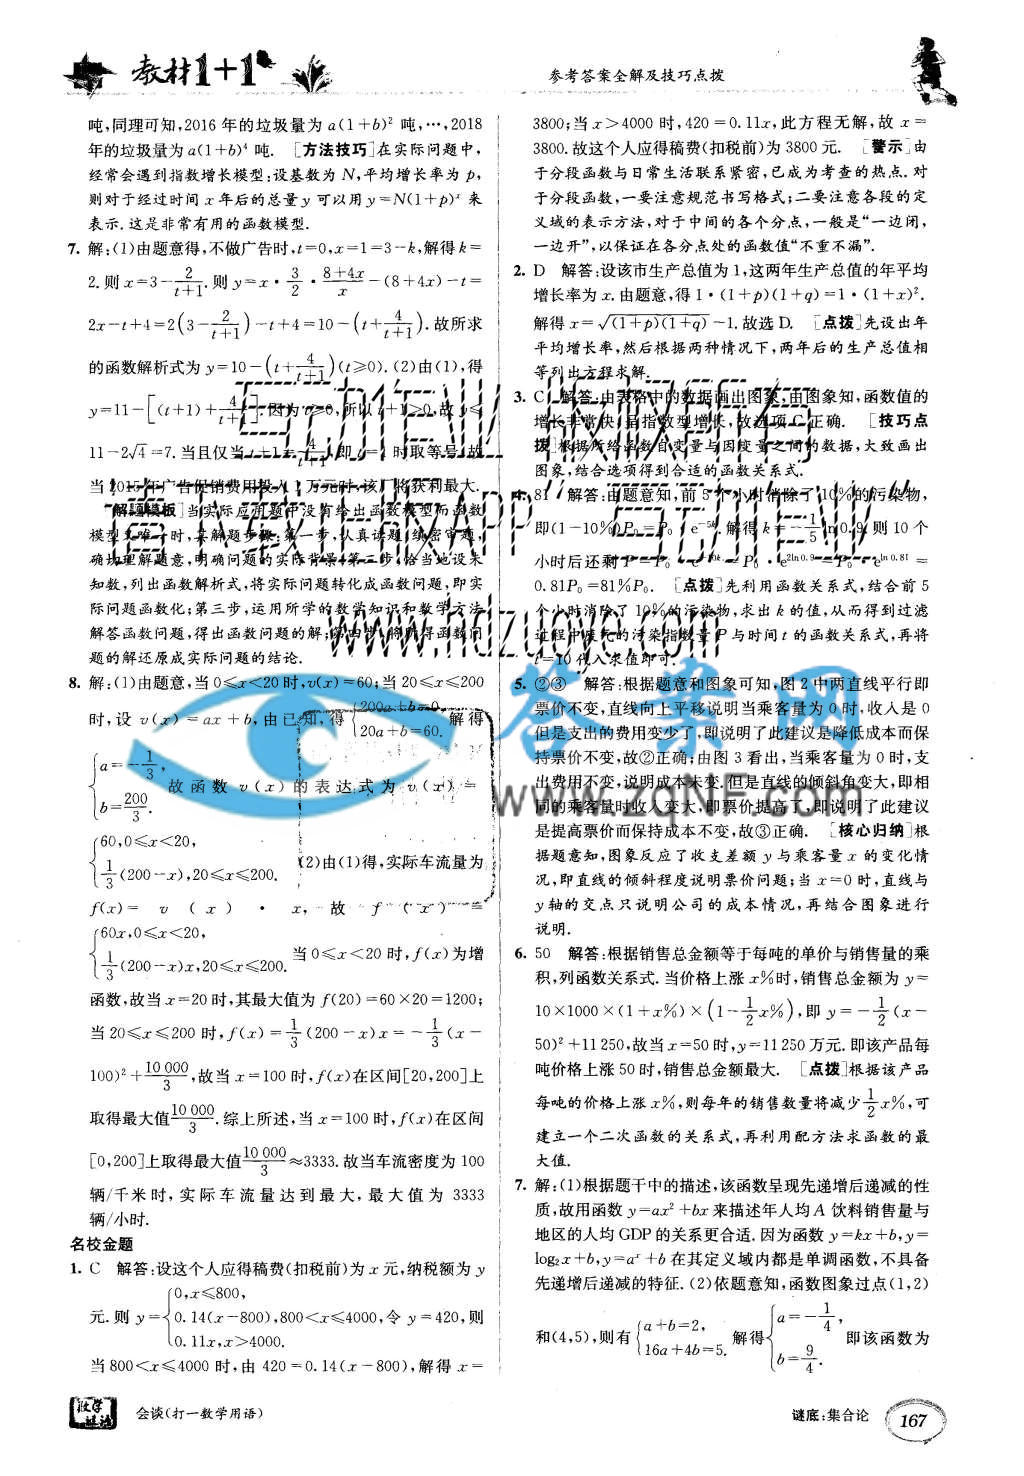 教材1+1
参考答案全解及技巧点拨
吨,同理可知,2016 年的垃圾量为 a(1+b)² 吨,…,2018
年的垃圾量为 a(1+b)⁴ 吨. [方法技巧]在实际问题中,
经常会遇到指数增长模型:设基数为 N,平均增长率为 p,
则对于经过时间 x 年后的总量 y 可以用 y=N(1+p)ˣ 来
表示.这是非常有用的函数模型.
7. 解:(1)由题意得,不做广告时,t=0,x=1=3-k,解得 k=
2.则 x=3-2/(t+1).则 y=x·3/2·(8+4x)/x-(8+4x)-t=
2x-t+4=2(3-2/(t+1))-t+4=10-(t+4/(t+1)).故所求
的函数解析式为 y=10-(t+4/(t+1))(t≥0).(2)由(1),得
y=11-[(t+1)+4/(t+1)].因为 t≥0,所以 t+1>0,故 y≤
11-2√4=7.当且仅当 t+1=4/(t+1),即 t=1 时取等号.故
当 2015 年广告促销费用投入 1 万元时,该厂将获利最大.
[解题模板]当实际应用题中没有给出函数模型而函数
模型又唯一时,其解题步骤:第一步,认真读题,缜密审题,
确切理解题意,明确问题的实际背景;第二步,恰当地设未
知数,列出函数解析式,将实际问题转化成函数问题,即实
际问题函数化;第三步,运用所学的数学知识和数学方法
解答函数问题,得出函数问题的解;第四步,将所得函数问
题的解还原成实际问题的结论.
8. 解:(1)由题意,当 0≤x<20 时,v(x)=60;当 20≤x≤200
时,设 v(x)=ax+b,由已知,得{200a+b=0, 20a+b=60. 解得
{a=-1/3, b=200/3. 故函数 v(x)的表达式为 v(x)=
{60,0≤x<20, 1/3(200-x),20≤x≤200. (2)由(1)得,实际车流量为
f(x)=v(x)·x,故 f(x)=
{60x,0≤x<20, 1/3(200-x)x,20≤x≤200. 当 0≤x<20 时,f(x)为增
函数,故当 x=20 时,其最大值为 f(20)=60×20=1200;
当 20≤x≤200 时,f(x)=1/3(200-x)x=-1/3(x-
100)²+10 000/3,故当 x=100 时,f(x)在区间[20,200]上
取得最大值10 000/3.综上所述,当 x=100 时,f(x)在区间
[0,200]上取得最大值10 000/3≈3333.故当车流密度为 100
辆/千米时,实际车流量达到最大,最大值为 3333
辆/小时.
名校金题
1. C 解答:设这个人应得稿费(扣税前)为 x 元,纳税额为 y
元.则 y={0,x≤800, 0.14(x-800),800<x≤4000, 0.11x,x>4000. 令 y=420,则
当 800<x≤4000 时,由 420=0.14(x-800),解得 x=
3800;当 x>4000 时,420=0.11x,此方程无解,故 x=
3800.故这个人应得稿费(扣税前)为 3800 元. [警示]由
于分段函数与日常生活联系紧密,已成为考查的热点.对
于分段函数,一要注意规范书写格式;二要注意各段的定
义域的表示方法,对于中间的各个分点,一般是“一边闭,
一边开”,以保证在各分点处的函数值“不重不漏”.
2. D 解答:设该市生产总值为 1,这两年生产总值的年平均
增长率为 x.由题意,得 1·(1+p)(1+q)=1·(1+x)².
解得 x=√(1+p)(1+q)-1.故选 D. [点拨]先设出年
平均增长率,然后根据两种情况下,两年后的生产总值相
等列出方程求解.
3. C 解答:由表格中的数据画出图象,由图象知,函数值的
增长非常快,呈指数型增长,故选项 C 正确. [技巧点
拨]根据所给函数自变量与因变量之间的数据,大致画出
图象,结合选项得到合适的函数关系式.
4. 81 解答:由题意知,前 5 个小时消除了 10%的污染物,
即(1-10%)P₀=P₀·e⁻⁵ᵏ.解得 k=-1/5 ln0.9,则 10 个
小时后还剩 P=P₀·e⁻¹⁰ᵏ=P₀·e^(2ln0.9)=P₀·e^(ln0.81)=
0.81P₀=81%P₀. [点拨]先利用函数关系式,结合前 5
个小时消除了 10%的污染物,求出 k 的值,从而得到过滤
过程中废气的污染指数量 P 与时间 t 的函数关系式,再将
t=10 代入求值即可.
5. ②③ 解答:根据题意和图象可知,图 2 中两直线平行即
票价不变,直线向上平移说明当乘客量为 0 时,收入是 0
但是支出的费用变少了,即说明了此建议是降低成本而保
持票价不变,故②正确;由图 3 看出,当乘客量为 0 时,支
出费用不变,说明成本未变.但是直线的倾斜角变大,即相
同的乘客量时收入变大,即票价提高了,即说明了此建议
是提高票价而保持成本不变,故③正确. [核心归纳]根
据题意知,图象反应了收支差额 y 与乘客量 x 的变化情
况,即直线的倾斜程度说明票价问题;当 x=0 时,直线与
y 轴的交点只说明公司的成本情况,再结合图象进行
说明.
6. 50 解答:根据销售总金额等于每吨的单价与销售量的乘
积,列函数关系式.当价格上涨 x%时,销售总金额为 y=
10×1000×(1+x%)×(1-1/2x%),即 y=-1/2(x-
50)²+11 250,故当 x=50 时,y=11 250 万元.即该产品每
吨价格上涨 50 时,销售总金额最大. [点拨]根据该产品
每吨的价格上涨 x%,则每年的销售数量将减少1/2x%,可
建立一个二次函数的关系式,再利用配方法求函数的最
大值.
7. 解:(1)根据题干中的描述,该函数呈现先递增后递减的性
质,故用函数 y=ax²+bx 来描述年人均 A 饮料销售量与
地区的人均 GDP 的关系更合适.因为函数 y=kx+b,y=
log₂x+b,y=aˣ+b 在其定义域内都是单调函数,不具备
先递增后递减的特征.(2)依题意知,函数图象过点(1,2)
和(4,5),则有{a+b=2, 16a+4b=5. 解得{a=-1/4, b=9/4. 即该函数为
会谈(打一数学用语)
谜底:集合论
167
www.hdzuoye.com
答案网
www.zqNF.com